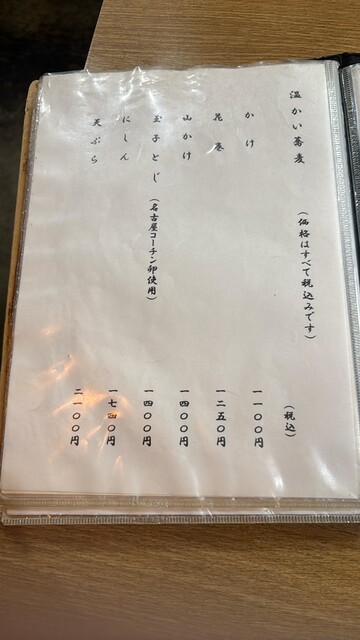 温かい蕎麦 (価格はすべて税込みです)
(税込)
かけ 一一〇〇円
花巻 一二五〇円
山かけ 一四〇〇円
玉子とじ (名古屋コーチン卵使用) 一四〇〇円
にしん 一七四〇円
天ぷら 二一〇〇円